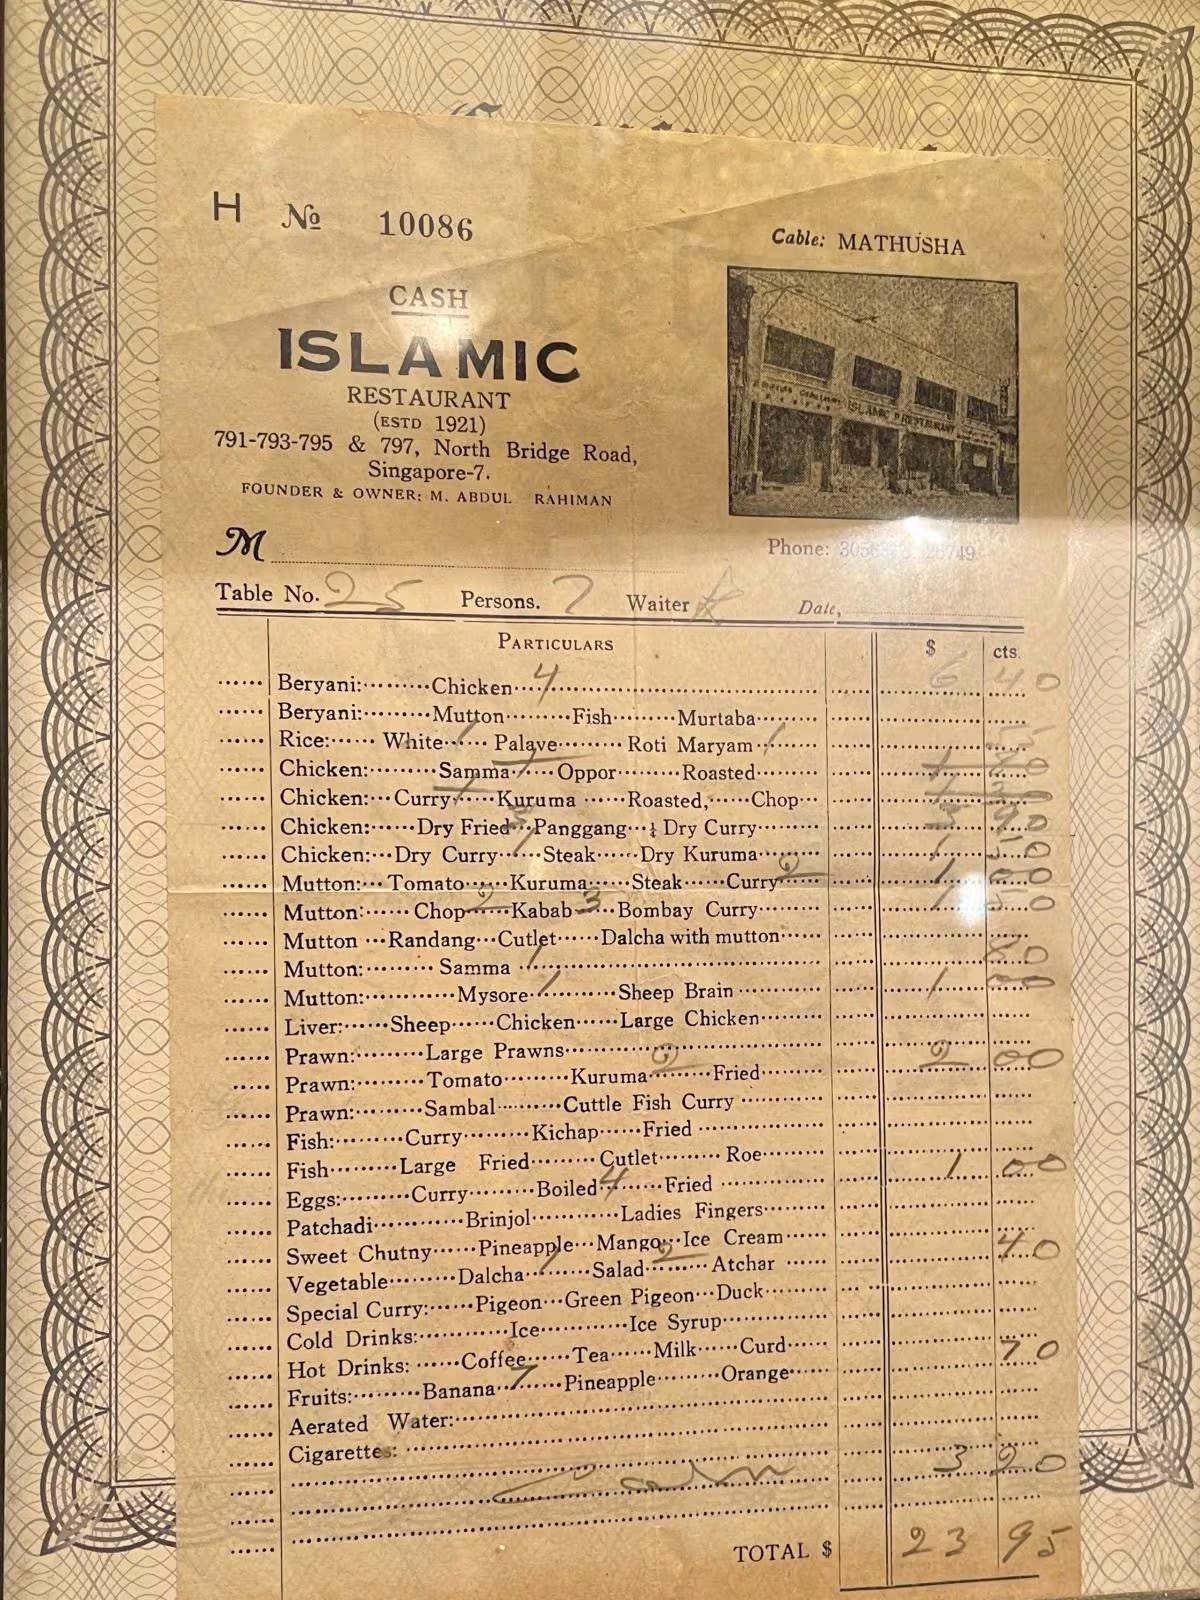 H № 10086
Cable: MATHUSHA
CASH
ISLAMIC
RESTAURANT
(ESTD 1921)
791-793-795 & 797, North Bridge Road,
Singapore-7.
FOUNDER & OWNER: M. ABDUL RAHIMAN
ISLAMIC RESTAURANT
M
Phone:
Table No. 25 Persons. 7 Waiter Date,
PARTICULARS $ cts.
Beryani: Chicken 4 6 40
Beryani: Mutton Fish Murtaba
Rice: White Palave Roti Maryam
Chicken: Samma Oppor Roasted
Chicken: Curry Kuruma Roasted, Chop
Chicken: Dry Fried Panggang ½ Dry Curry 3 90
Chicken: Dry Curry Steak Dry Kuruma 1
Mutton: Tomato Kuruma Steak Curry 2 1 00
Mutton: Chop 2 Kabab 3 Bombay Curry 1 50
Mutton Randang Cutlet Dalcha with mutton
Mutton: Samma 1
Mutton: Mysore 1 Sheep Brain 1 00
Liver: Sheep Chicken Large Chicken
Prawn: Large Prawns
Prawn: Tomato Kuruma 2 Fried 2 00
Prawn: Sambal Cuttle Fish Curry
Fish: Curry Kichap Fried
Fish Large Fried Cutlet Roe
Eggs: Curry Boiled 4 Fried 1 00
Patchadi Brinjol Ladies Fingers
Sweet Chutny Pineapple Mango Ice Cream
Vegetable Dalcha 1 Salad 2 Atchar 40
Special Curry: Pigeon Green Pigeon Duck
Cold Drinks: Ice Ice Syrup
Hot Drinks: Coffee Tea Milk Curd
Fruits: Banana 7 Pineapple Orange 70
Aerated Water:
Cigarettes:
3 20
TOTAL $ 23 95